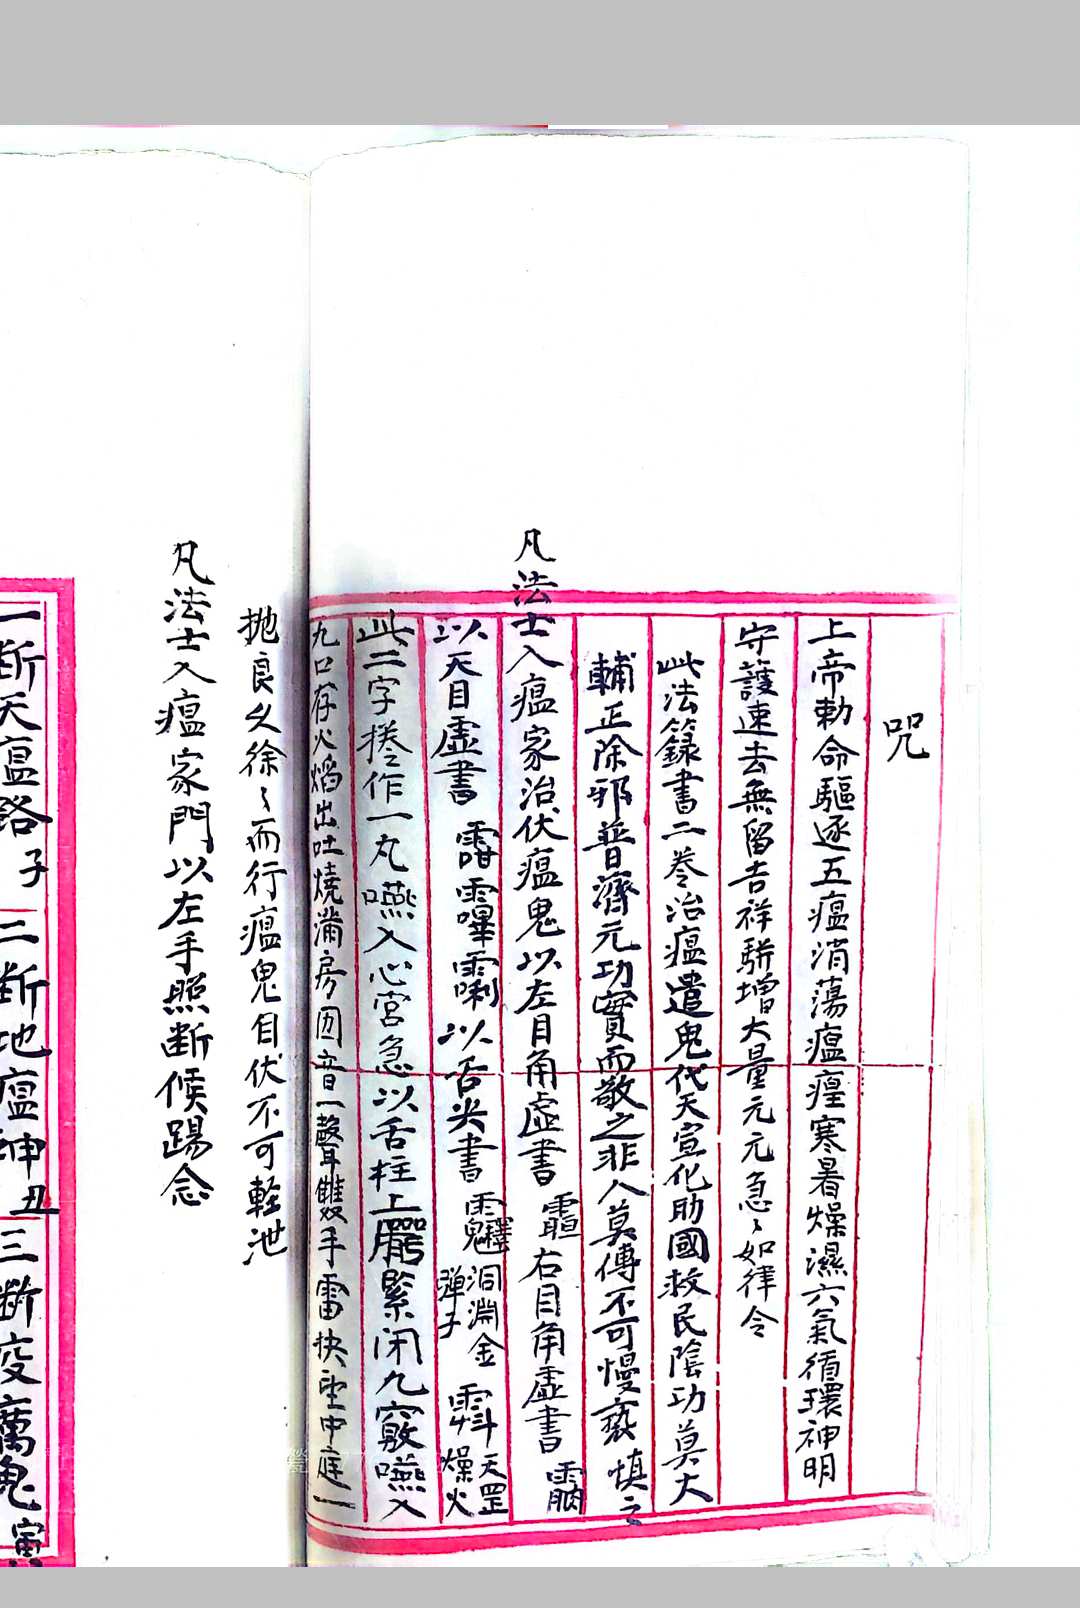 咒
上帝勅命驅逐五瘟消蕩瘟㾮寒暑燥濕六氣循環神明
守護速去無留吉祥駢增大量元元急〻如律令
此法籙書二卷治瘟遣鬼代天宣化助國救民陰功莫大
輔正除邪普濟元功實而敬之非人莫傳不可慢褻慎之
凡法士入瘟家治伏瘟鬼以左目角虛書 右目角虛書
以天目虛書 以舌尖書 洞淵金彈子 天罡燥火
此二字捲作一丸嚥入心宮急以舌柱上腭緊闭九竅嚥入
九口存火焰出吐燒滿房因音一聲雙手雷抉 中庭一
拋良久徐〻而行瘟鬼自伏不可輕泄
凡法士入瘟家門以左手照断候踢念
一断天瘟路子 二断地瘟神丑 三断疫癘鬼寅